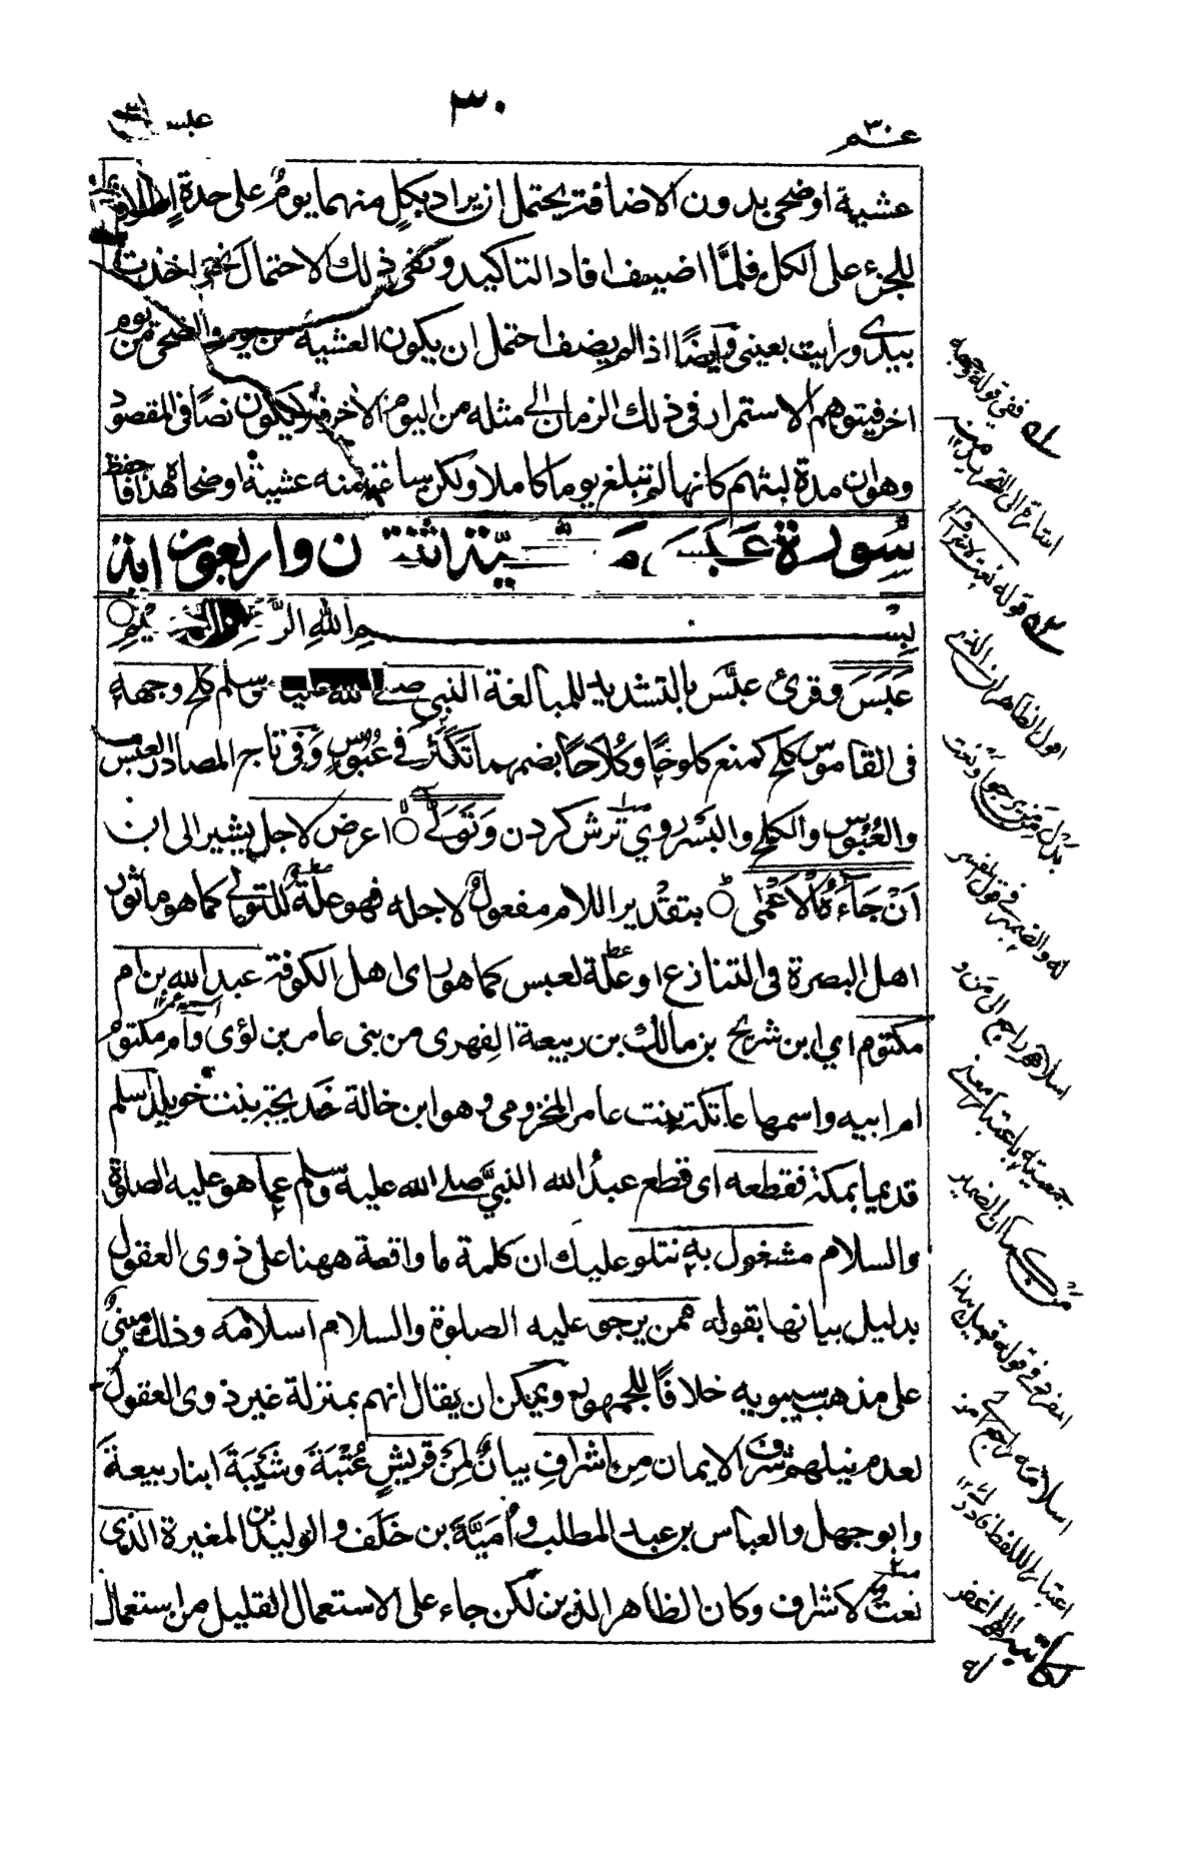 ٣٠
عبس
عم ٣٠
عشية او ضحى بدون الاضافة يحتمل ان يراد بكل منهما يوم على حدة اطلاقا
للجزء على الكل فلما اضيف افاد التاكيد ونفى ذلك الاحتمال نحو اخذت
بيدى ورايت بعينى وايضا اذا لم يضف احتمل ان يكون العشية من يوم والضحى من يوم
اخر فيتوهم الاستمرار فى ذلك الزمان الى مثله من اليوم الاخر فلا يكون نصا فى المقصود
وهو ان مدة لبثهم كانها لم تبلغ يوما كاملا ولكن ساعة منه عشية او ضحاه هذا فاحفظ
سورة عبس مكية اثنتان واربعون اية
بسم الله الرحمن الرحيم
عَبَسَ وقرئ عبّس بالتشديد للمبالغة النبى صلے الله عليه وسلم كلح وجهه
فى القاموس كلح كمنع كلوحًا وكُلاحًا بضمهما تكشر فى عُبُوس وفى تاج المصادر العبس
والعُبُوس والكلح والبسر روي ترش كردن وَتَوَلّٰى ۝ اعرض لاجل يشير الى ان
اَنْ جَآءَهُ الْاَعْمٰى ۝ بتقدير اللام مفعول لاجله فهو علة للتولى كما هو ماثور
اهل البصرة فى التنازع او علة لعبس كما هو راى اهل الكوفة عبد الله بن ام
مكتوم اي ابن شريح بن مالك بن ربيعة الفهرى من بنى عامر بن لؤى وام مكتوم
ام ابيه واسمها عاتكة بنت عامر المخزومى وهو ابن خالة خديجة بنت خويلد اسلم
قديما بمكة فقطعه اى قطع عبدُ الله النبىَّ صلے الله عليه وسلم عما هو عليه الصلوة
والسلام مشغول به نتلو عليك ان كلمة ما واقعة ههنا على ذوى العقول
بدليل بيانها بقوله ممن يرجو عليه الصلوة والسلام اسلامه وذلك مبنىٌّ
على مذهب سيبويه خلافًا للجمهور ويمكن ان يقال انهم بمنزلة غير ذوى العقول
لعدم نيلهم شرف الايمان من اشراف بيانٌ لِمَن قريشٍ عُتْبَةَ وشَيْبَةَ ابنا ربيعة
وابو جهل والعباس بن عبد المطلب واُمَيَّةَ بن خَلَف والوليد بن المغيرة الذى
نعت الاشراف وكان الظاهر الذين لكن جاء على الاستعمال القليل من استعمال
له ففى قوله وجهه
اشارة الى التجريد من
قوله نعت لاشراف
اقول الظاهر ان الذى
له والضمير فى قول المفسر
اسلامه راجع الى من و
جمعيته باعتبار معنى
من كما ان الضمير
المفرد فى قوله قبيل هذا
اسلامه راجع
اعتبار اللفظ
لكاتبه اللهم اغفر
له